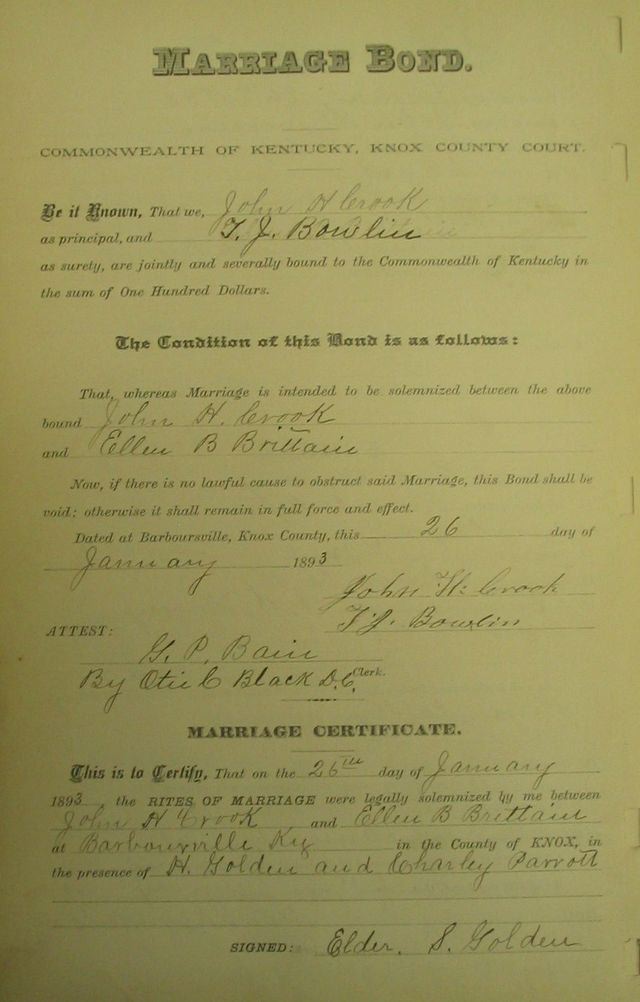 MARRIAGE BOND.
COMMONWEALTH OF KENTUCKY, KNOX COUNTY COURT.
Be it Known, That we, John H Crook
as principal, and T. J. Bowlin
as surety, are jointly and severally bound to the Commonwealth of Kentucky in
the sum of One Hundred Dollars.
The Condition of this Bond is as follows:
That, whereas Marriage is intended to be solemnized between the above
bound John H. Crook
and Ellen B Brittain
Now, if there is no lawful cause to obstruct said Marriage, this Bond shall be
void; otherwise it shall remain in full force and effect.
Dated at Barboursville, Knox County, this 26 day of
January 1893
John H. Crook
T. J. Bowlin
ATTEST:
G. P. Bain
By Otis C Black D.C. Clerk.
MARRIAGE CERTIFICATE.
This is to Certify, That on the 26th day of January
1893 the RITES OF MARRIAGE were legally solemnized by me between
John H Crook and Ellen B Brittain
at Barbourville Ky in the County of KNOX, in
the presence of H. Golden and Charley Parrott
SIGNED: Elder. S. Golden